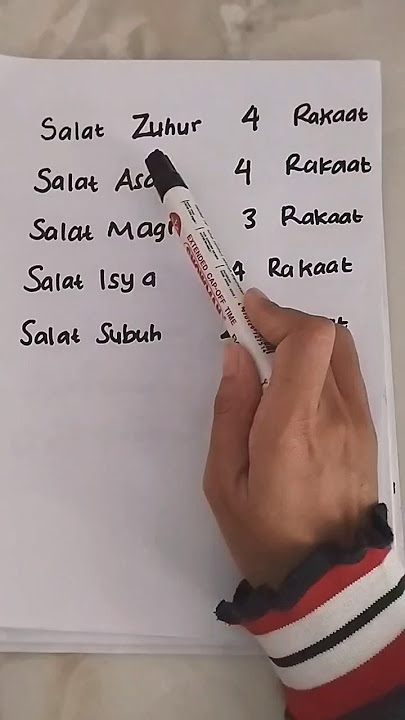 Salat Zuhur 4 Rakaat
Salat 4 Rakaat
Salat 3 Rakaat
Salat Isya 4 Rakaat
Salat Subuh
EXTENDED CAP-OFF TIME